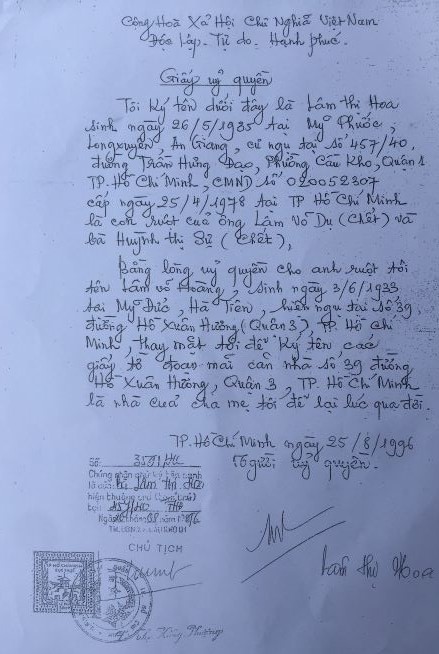 Cộng Hoà Xã Hội Chủ Nghĩa Việt Nam
Độc Lập - Tự do - Hạnh phúc.
Giấy uỷ quyền
Tôi ký tên dưới đây là Lâm thị Hoa
sinh ngày 26/5/1935 tại Mỹ Phước,
Longxuyên, An Giang, cư ngụ tại số 457/40.
đường Trần Hưng Đạo, Phường Cầu Kho, Quận 1
TP. Hồ Chí Minh, CMND số 020052307
cấp ngày 25/4/1978 tại TP Hồ Chí Minh
là con ruột của ông Lâm Võ Dụ (Chết) và
bà Huỳnh thị Sử (Chết),
Bằng lòng uỷ quyền cho anh ruột tôi
tên Lâm võ Hoàng, sinh ngày 3/6/1933
tại Mỹ Đức, Hà Tiên, hiện ngụ tại số 39
đường Hồ Xuân Hương (Quận 3), TP. Hồ Chí
Minh, thay mặt tôi để ký tên các
giấy tờ đoạn mãi căn nhà số 39 đường
Hồ Xuân Hương, Quận 3, TP. Hồ Chí Minh
là nhà của cha mẹ tôi để lại lúc qua đời.
TP. Hồ Chí Minh ngày 25/8/1996
Người uỷ quyền.
Số:
Chứng nhận chữ ký bên cạnh
là của Lâm Thị Hoa
hiện thường trú
tại:
Ngày tháng năm 1996
CHỦ TỊCH
Lâm thị Hoa
Phượng